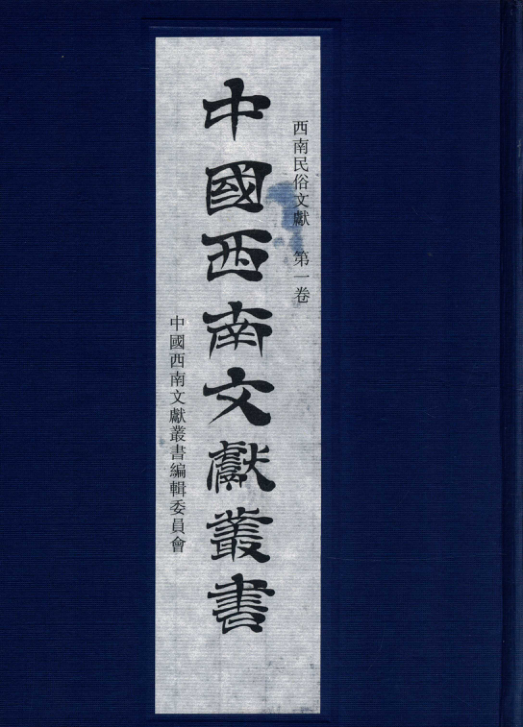 西南民俗文獻 第一卷
中國西南文獻叢書
中國西南文獻叢書編輯委員會